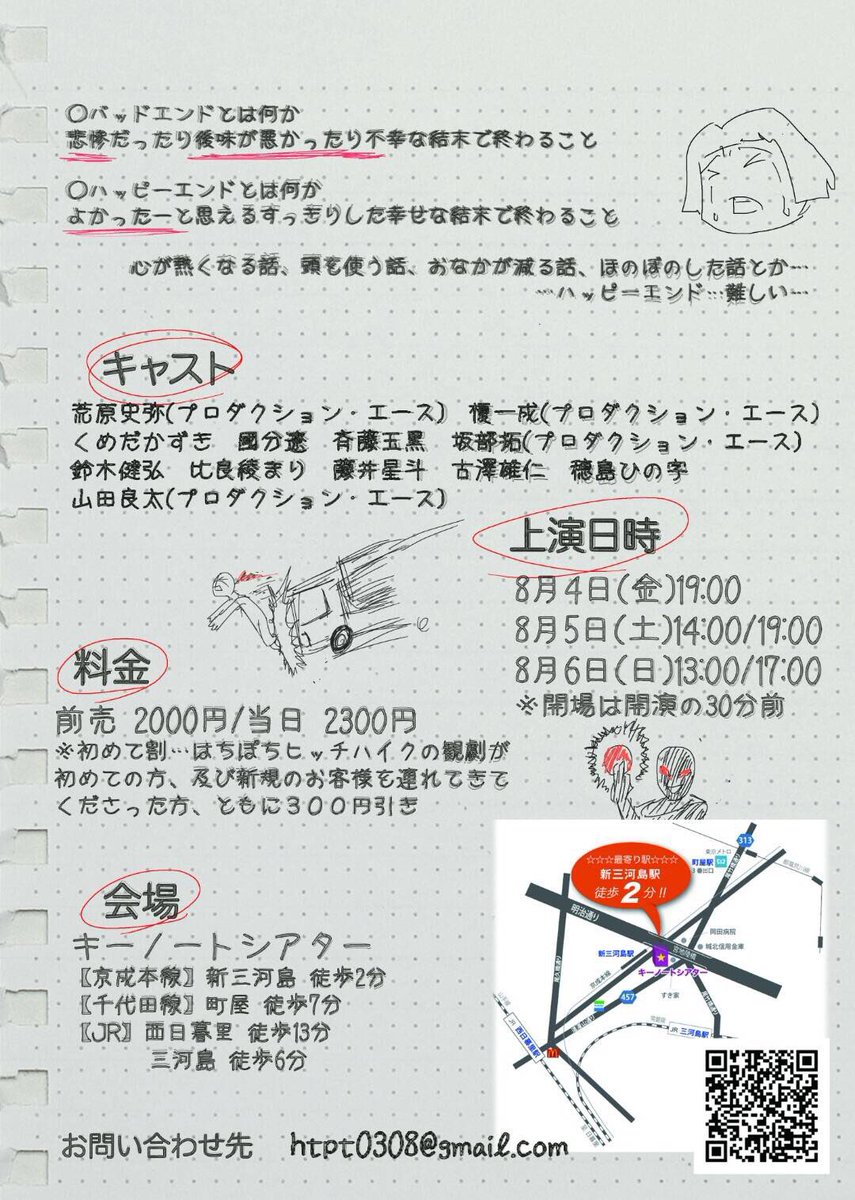 〇バッドエンドとは何か
悲惨だったり後味が悪かったり不幸な結末で終わること
〇ハッピーエンドとは何か
よかったーと思えるすっきりした幸せな結末で終わること
心が熱くなる話、頭を使う話、おなかが減る話、ほのぼのした話とか…
…ハッピーエンド…難しい…
キャスト
荒原史弥(プロダクション・エース) 榎一成(プロダクション・エース)
くめだかずき 國分遼 斉藤玉黒 坂部拓(プロダクション・エース)
鈴木健弘 比良綾まり 藤井星斗 古澤雄仁 穂島ひの字
山田良太(プロダクション・エース)
上演日時
8月4日(金)19:00
8月5日(土)14:00/19:00
8月6日(日)13:00/17:00
※開場は開演の30分前
料金
前売 2000円/当日 2300円
※初めて割…はちぽちヒッチハイクの観劇が
初めての方、及び新規のお客様を連れてきて
くださった方、ともに300円引き
会場
キーノートシアター
〖京成本線〗新三河島 徒歩2分
〖千代田線〗町屋 徒歩7分
〖JR〗西日暮里 徒歩13分
三河島 徒歩6分
☆☆☆最寄り駅☆☆☆
新三河島駅
徒歩2分!!
313
東京メトロ
町屋駅
3番出口
明治通り
岡田病院
城北信用金庫
新三河島駅
キーノートシアター
京成本線
457
すき家
JR 三河島駅
JR 西日暮里駅
お問い合わせ先 htpt0308@gmail.com